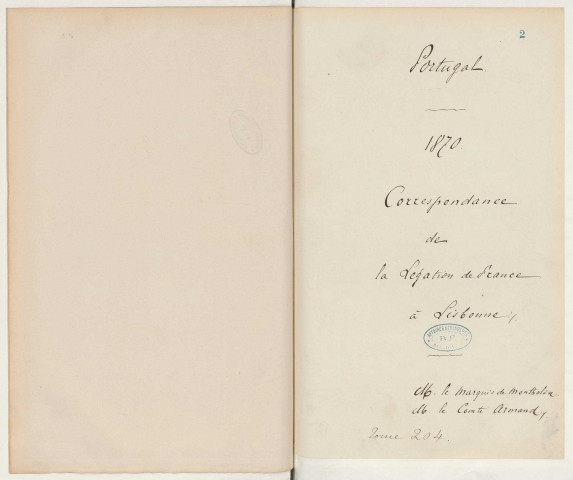 2
Portugal.
1870.
Correspondance
de
la Légation de France
à Lisbonne,
M. le Marquis de Montholon
M. le Comte Armand,
Tome 204.